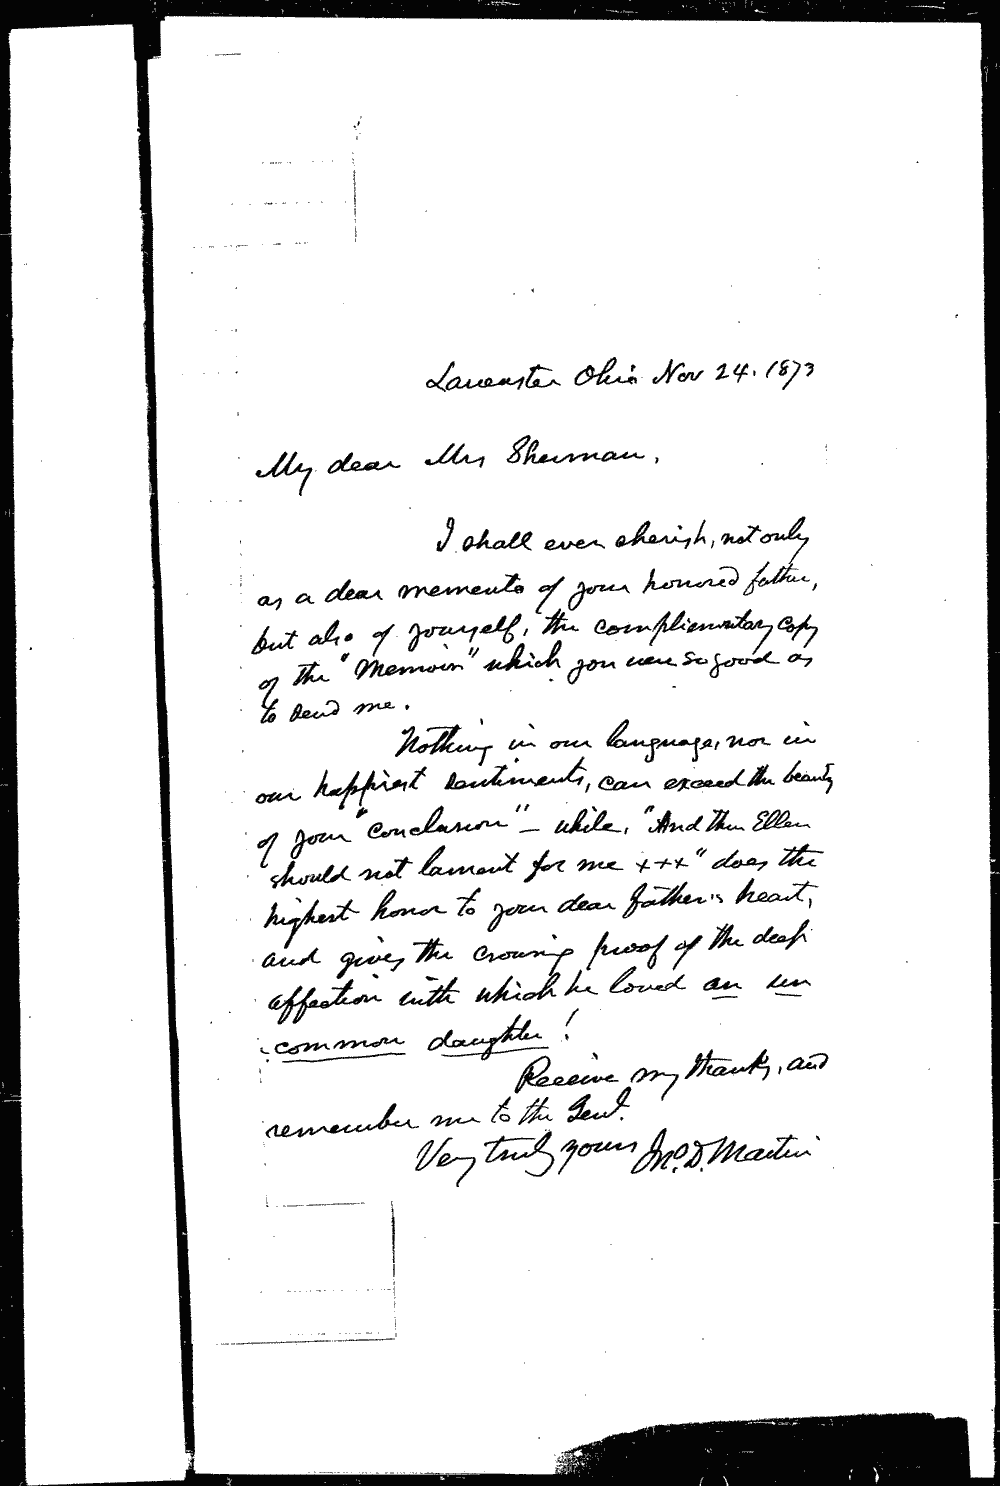 Lancaster Ohio Nov 24. 1873
My dear Mrs Sherman,
I shall ever cherish, not only
as a dear memento of your honored father,
but also of yourself, the complimentary copy
of the "Memoir" which you were so good as
to send me.
Nothing in our language, nor in
our happiest sentiments, can exceed the beauty
of your "Conclusion" – while, "And then Ellen
should not lament for me +++" does the
highest honor to your dear father's heart,
and gives the crowing proof of the deep
affection with which he loved an un
common daughter!
Receive my thanks, and
remember me to the Genl.
Very truly yours Jno. D. Martin